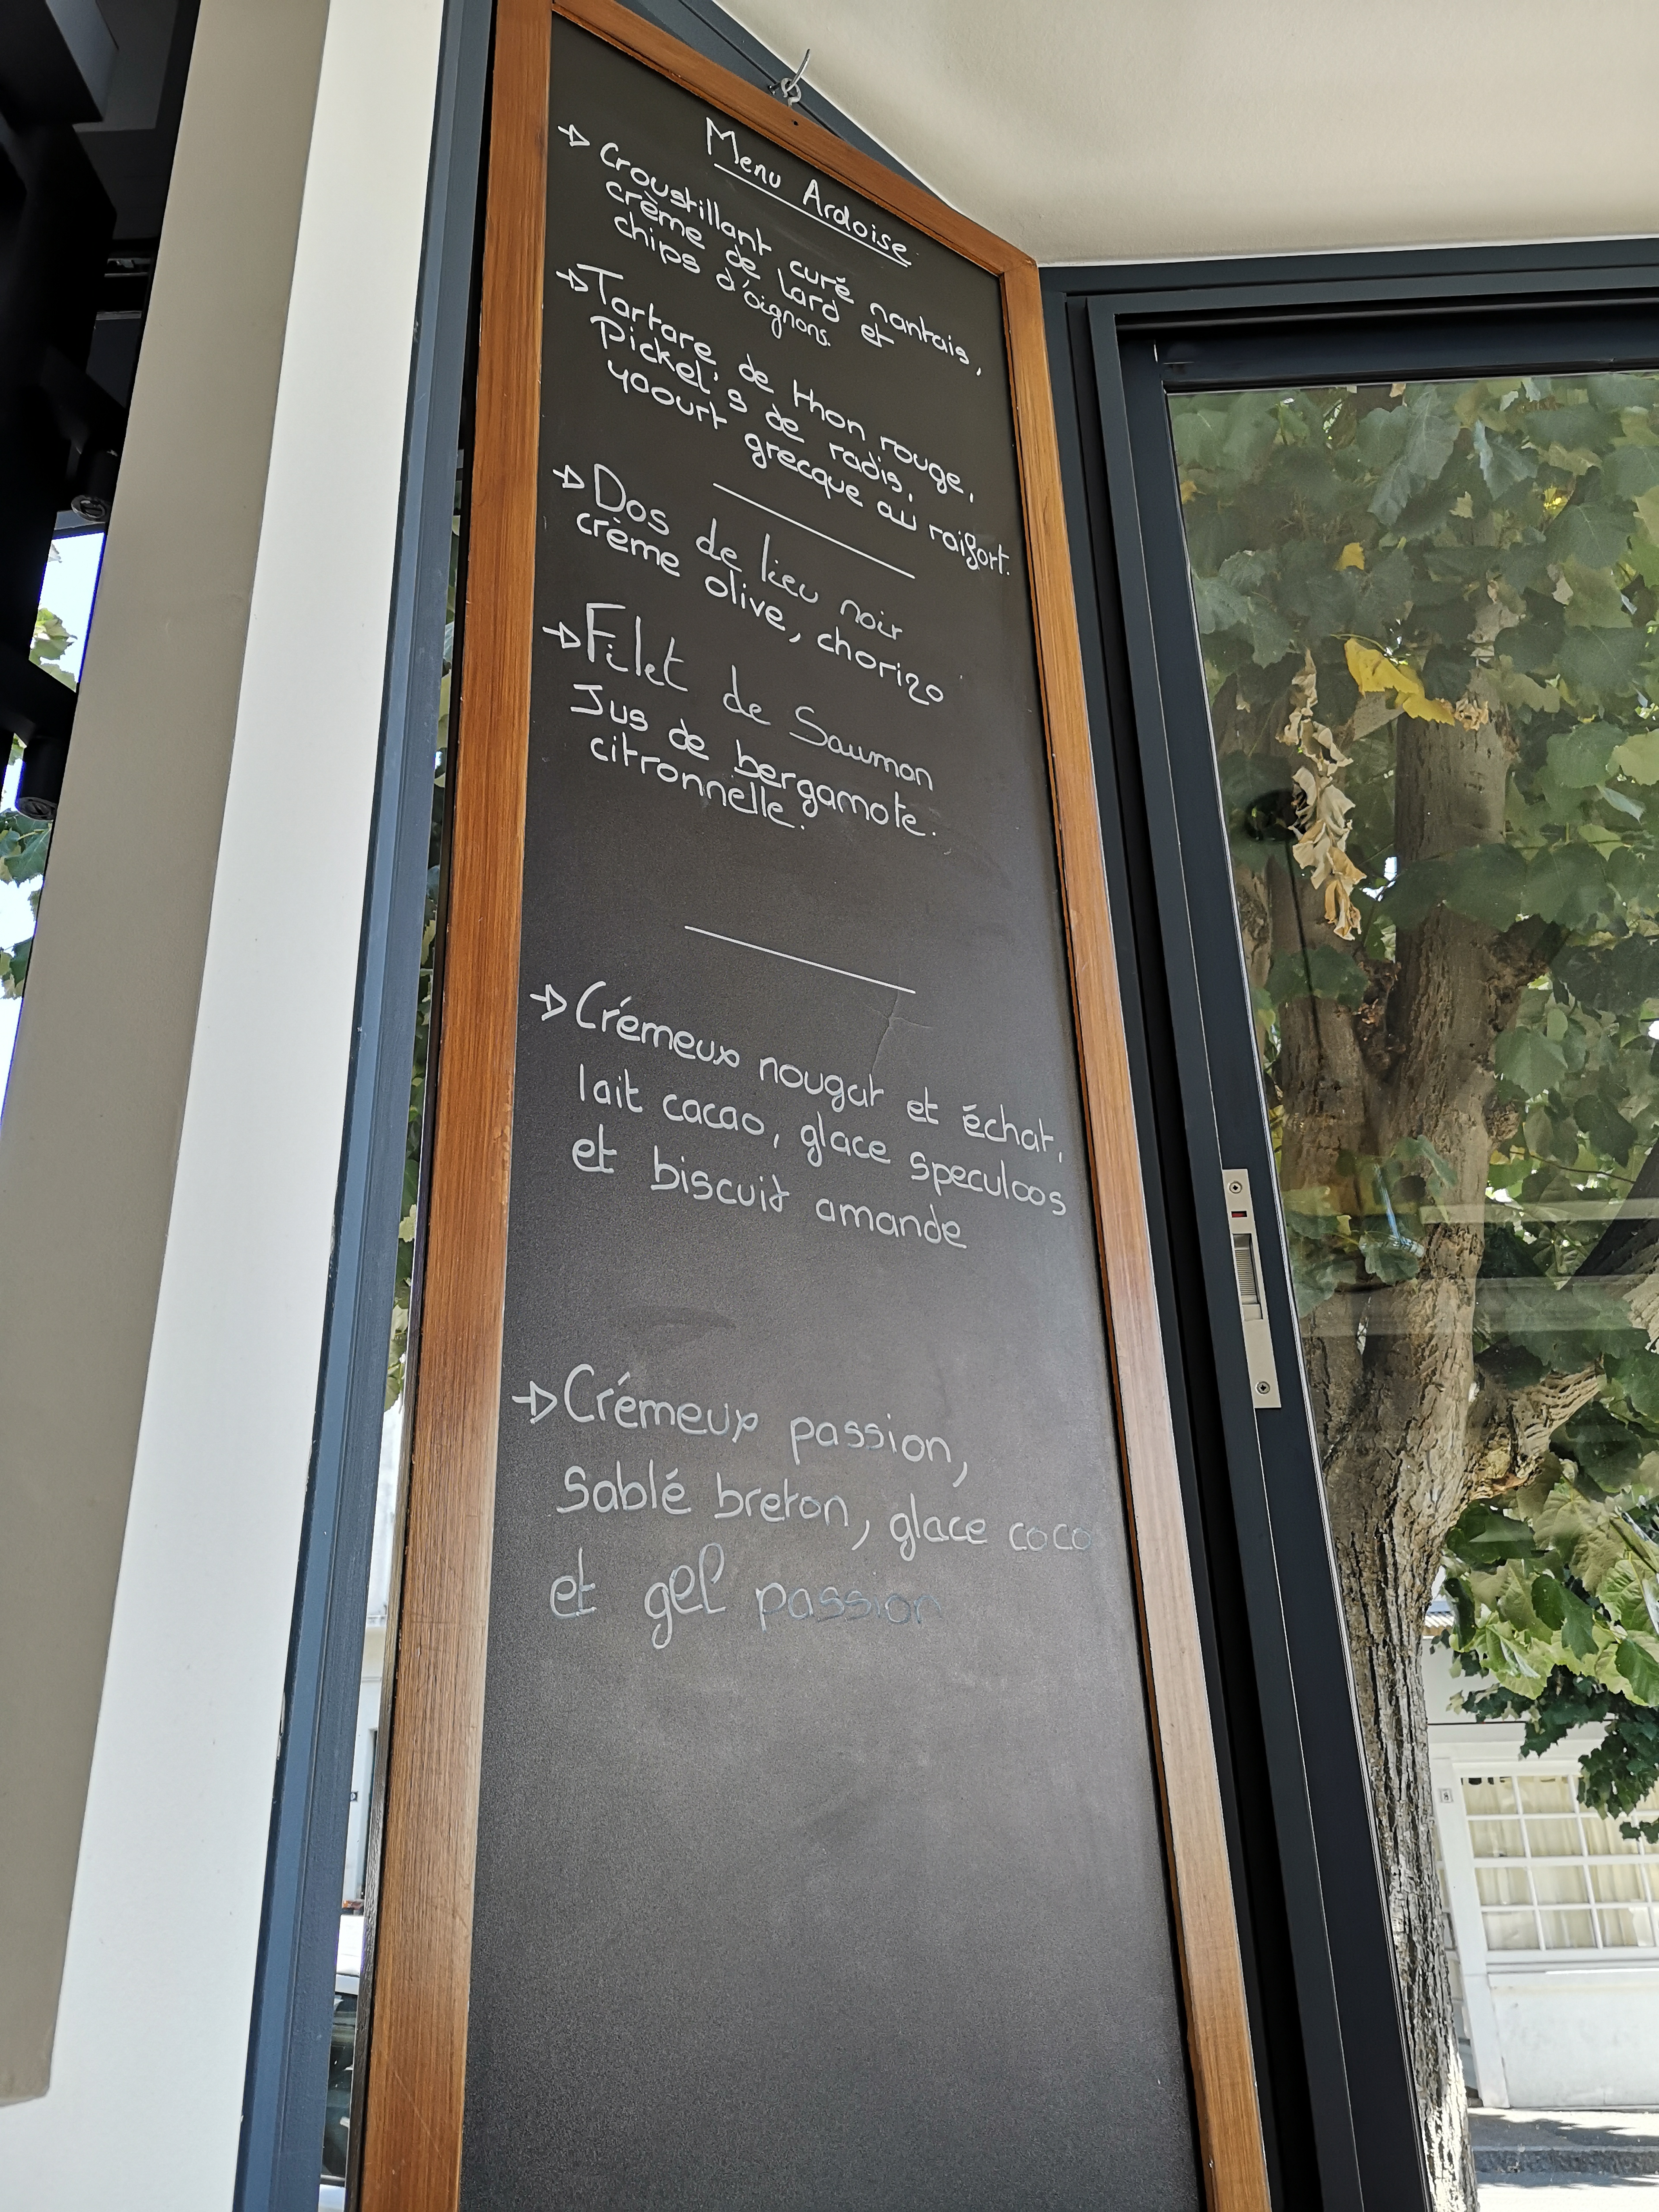 Menu Ardoise
→ Croustillant curé nantais,
crème de lard et
chips d'oignons.
→ Tartare de thon rouge,
Pickel's de radis,
yaourt grecque au raifort.
→ Dos de lieu noir
crème olive, chorizo
→ Filet de Saumon
Jus de bergamote.
citronnelle.
→ Crémeux nougat et échat,
lait cacao, glace speculoos
et biscuit amande
→ Crémeux passion,
Sablé breton, glace coco
et gel passion
8